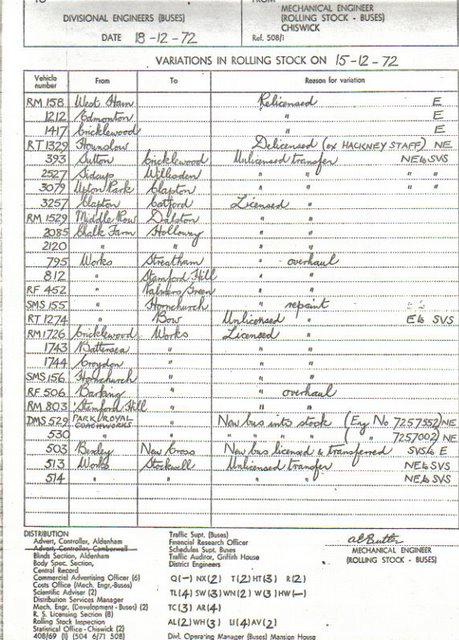 TO
DIVISIONAL ENGINEERS (BUSES)
DATE 18-12-72
FROM
MECHANICAL ENGINEER
(ROLLING STOCK - BUSES)
CHISWICK
Ref. 508/1
VARIATIONS IN ROLLING STOCK ON 15-12-72
Vehicle number From To Reason for variation
RM 158 West Ham Relicensed E
1212 Edmonton " E
1417 Cricklewood " E
RT 1329 Hounslow Delicensed (ex HACKNEY STAFF) NE
393 Sutton Cricklewood Unlicensed transfer NE to SVS
2527 Sidcup Willesden " " " "
3079 Upton Park Clapton " " " "
3257 Clapton Catford Licensed "
RM 1529 Middle Row Dalston " "
2085 Chalk Farm Holloway " "
2120 " " " "
795 Works Streatham " overhaul
812 " Stamford Hill " "
RF 452 " Palmers Green " "
SMS 155 " Hornchurch " repaint
RT 1274 " Bow Unlicensed " E to SVS
RM 1726 Cricklewood Works Licensed "
1743 Battersea " " "
1744 Croydon " " "
SMS 156 Hornchurch " " "
RF 506 Barking " " overhaul
RM 803 Stamford Hill " " "
DMS 529 PARK ROYAL COACHWORKS " New bus into stock (Eng No 7257552) NE
530 " " " " " " ( " 7257002) NE
503 Bexley New Cross New bus licensed & transferred SVS to E
513 Works Stockwell Unlicensed transfer NE to SVS
514 " " " " NE to SVS
DISTRIBUTION
Advert, Controller, Aldenham
Advert, Controller, Camberwell
Blinds Section, Aldenham
Body Spec. Section,
Central Record
Commercial Advertising Officer (6)
Costs Office (Mech. Engr.-Buses)
Statistics Adviser (2)
Distribution Services Manager
Mech. Engr. (Development - Buses) (2)
R. S. Licensing Section (8)
Rolling Stock Inspection
Statistical Office - Chiswick (2)
408/69 (1) (504 6/71 508)
Traffic Supt. (Buses)
Financial Research Officer
Schedules Supt. Buses
Traffic Auditor, Griffith House
District Engineers
Q(-) NX(2) T(2) HT(3) R(2)
TL(4) SW(3) WN(2) W(3) HW(-)
TC(3) AR(4)
AL(2) WH(3) U(4) AV(2)
Divl. Operating Manager (Buses) Mansion House
MECHANICAL ENGINEER
(ROLLING STOCK - BUSES)